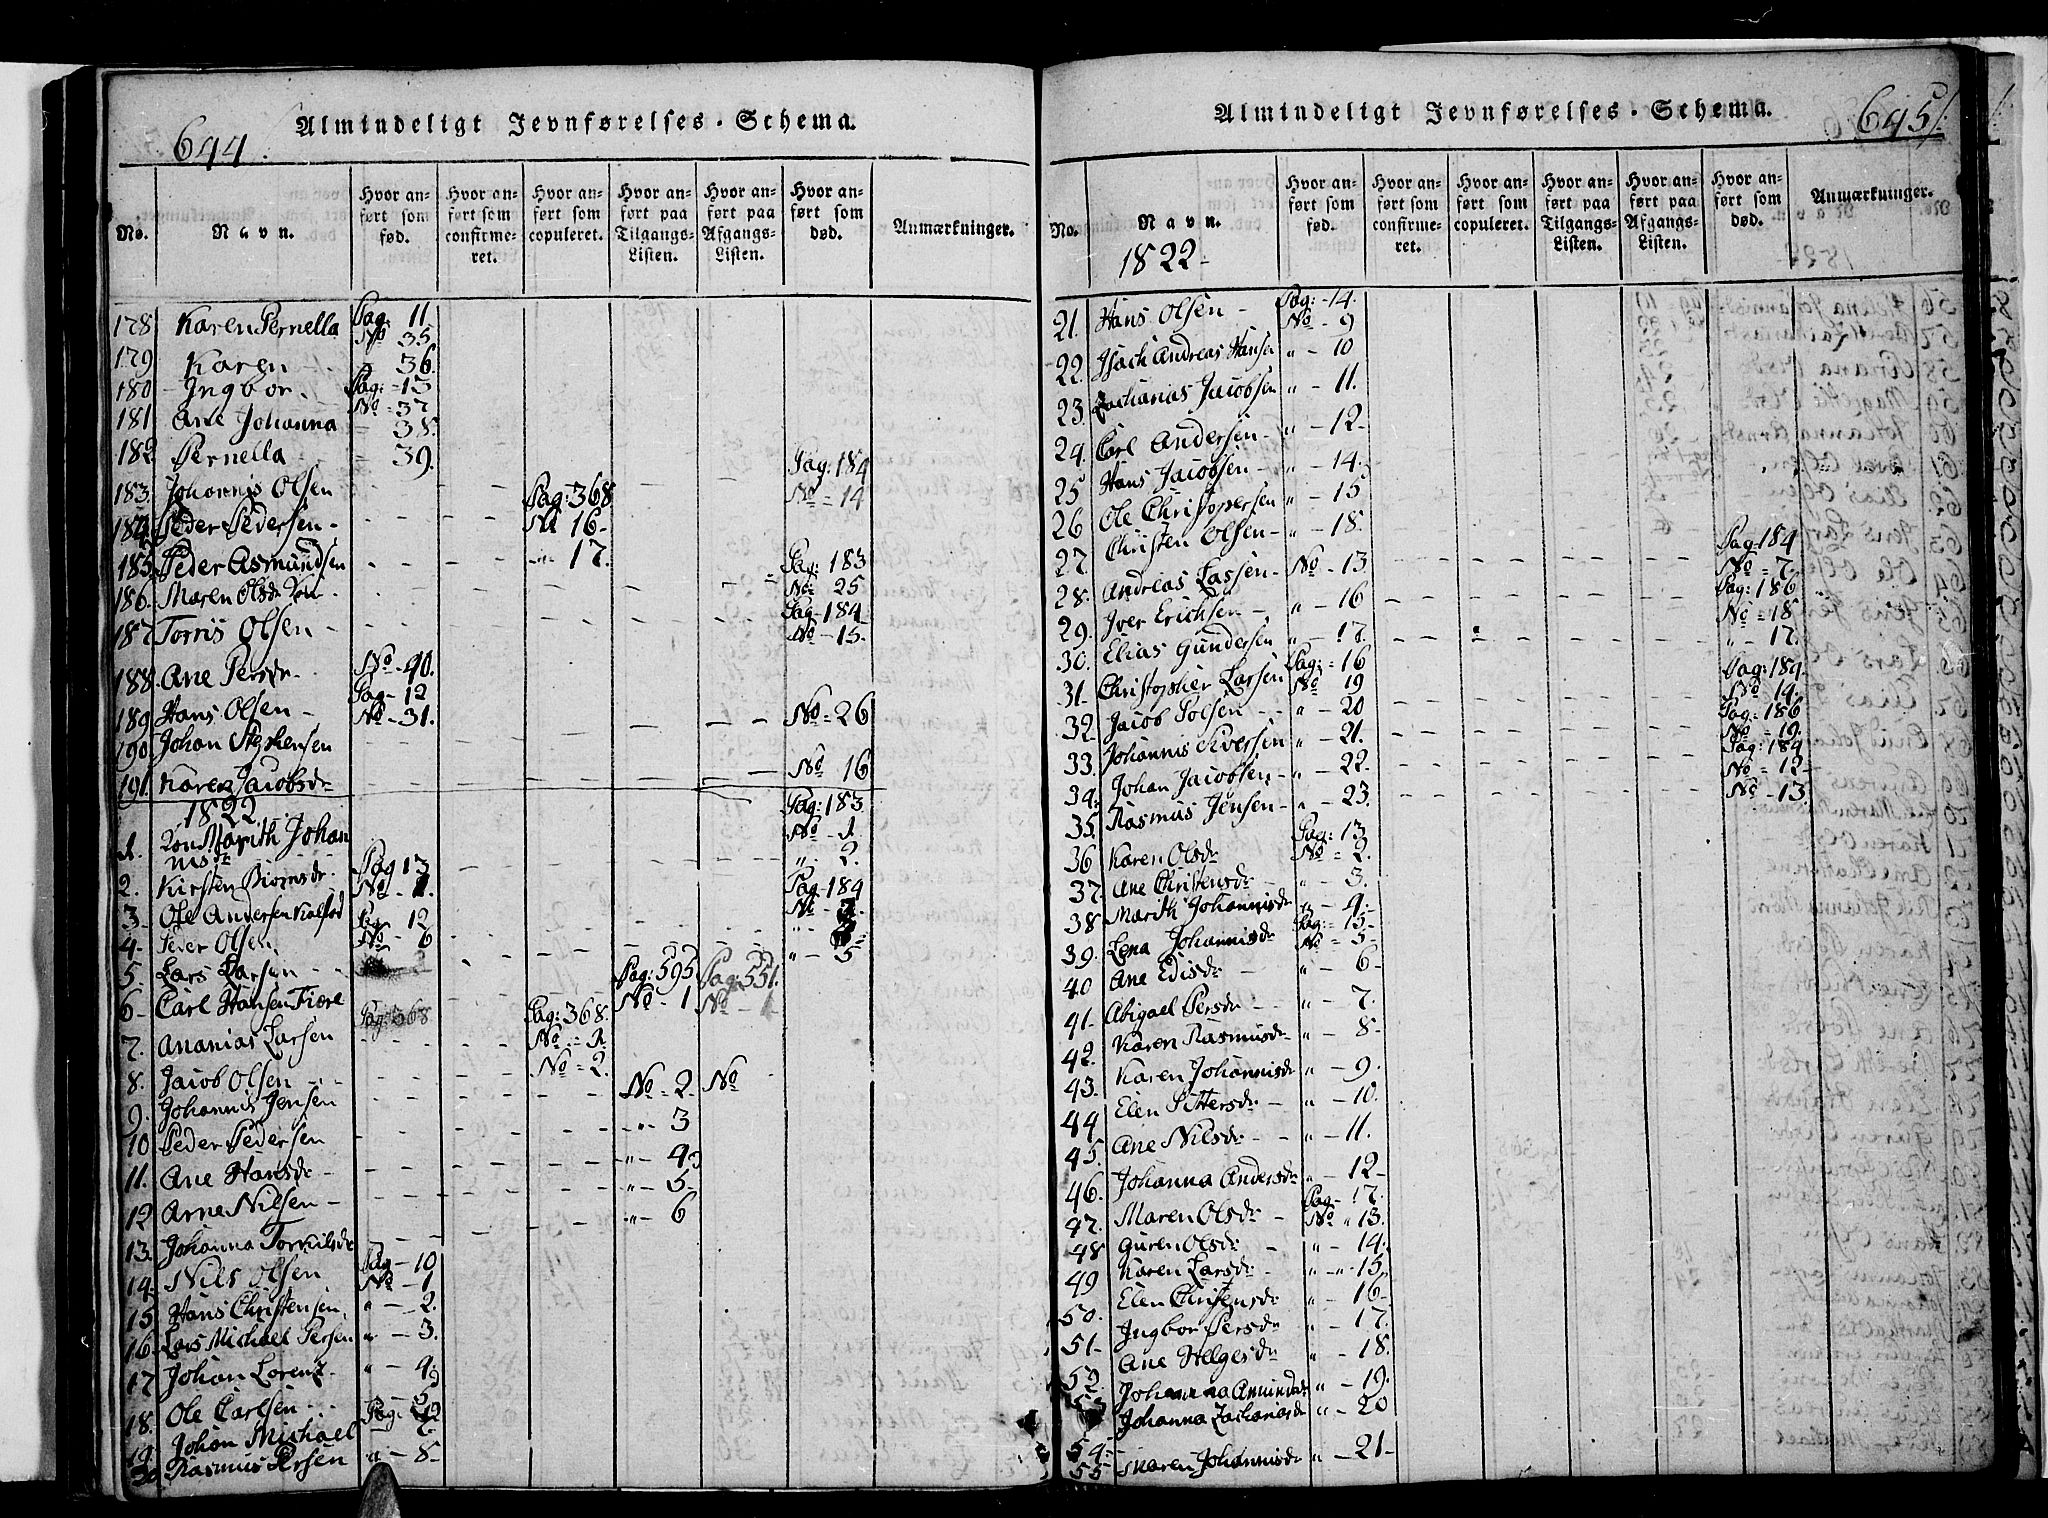 644. Almindeligt Jevnførelses-Schema.
No. Navn. Hvor anført som fød. Hvor anført som confirmeret. Hvor anført som copuleret. Hvor anført paa Tilgangs-Listen. Hvor anført paa Afgangs-Listen. Hvor anført som død. Anmærkninger.
178 Karen Pernella Pag: 11 No 35
179 Karen 36.
180 Ingbor. Pag: 13
181 Ane Johanna No 37 38.
182 Pernella 39.
183. Johannis Olsen Pag: 184 No 14
184 Peder Pedersen Pag: 368 No 16
185 Peder Asmundsen 17.
186. Maren Olsdr Pag: 183 No 25
187 Torris Olsen Pag 184 No 15.
188. Ane Persdr. No 40.
189 Hans Olsen Pag 12 No 31.
190. Johan Stephensen No 26
191. Karen Jacobsdr No 16
1822.
1. Marith Johannisdr Pag: 183 No 1.
2. Kirsten Biørnsdr. Pag 13 No 1. " 2.
3. Ole Andersen Pag 12 Pag 184
4. Peder Olsen No 6
5. Lars Larsen " 5
6. Carl Hansen Fiere Pag: 595 No 1 Pag: 551. No 1
7. Ananias Larsen Pag: 368 Pag: 368. No 1.
8. Jacob Olsen No 2.
9. Johannis Jensen No 2 No
10 Peder Pedersen " 3
11. Ane Hansdr " 4
12 Arne Nilsen " 5
13. Johanna Torkilsdr " 6
14. Nils Olsen Pag 10 No 1
15 Hans Christensen " 2.
16. Lars Michael Persen " 3.
17 Johan Lorenz. " 4
18. Ole Carlsen 5
19. Johan Michael Pag: 12
20. Rasmus Persen " 8
Almindeligt Jevnførelses-Schema. 645
No. Navn. Hvor anført som fød. Hvor anført som confirmeret. Hvor anført som copuleret. Hvor anført paa Tilgangs-Listen. Hvor anført paa Afgangs-Listen. Hvor anført som død. Anmærkninger.
1822
21. Hans Olsen Pag: 14. No 9
22. Isach Andreas Hansen " 10
23. Zacharias Jacobsen " 11.
24. Carl Andersen " 12
25 Hans Jacobsen " 14.
26 Ole Christophersen " 15
27. Christen Olsen " 18.
28. Andreas Lassen No 13 Pag: 184 No 7.
29. Iver Erichsen " 16 Pag: 186 No 18
30. Elias Gundersen " 17. " 17.
31. Christopher Larsen Pag: 16 No 19
32. Jacob Polsen " 20 Pag: 184 No 14.
33. Johannis Iversen " 21. Pag: 186 No 19.
34. Johan Jacobsen " 22. Pag: 184 No 12
35. Rasmus Jensen " 23. No 13
36 Karen Olsdr Pag: 13 No 2.
37. Ane Christensdr " 3.
38 Marith Johannisdr " 4.
39. Lena Johannisdr Pag: 15. No 5
40 Ane Edisdr " 6
41. Abigael Persdr " 7.
42. Karen Rasmusdr " 8
43. Karen Johannisdr " 9.
44 Elen Pittersdr " 10.
45. Ane Nilsdr " 11.
46. Johanna Andersdr " 12
47. Maren Olsdr Pag 17. No 13.
48 Guren Olsdr " 14.
49 Karen Larsdr " 15.
50. Elen Christensdr " 16
51. Ingbor Persdr " 17.
52. Ane Helgesdr " 18.
53 Johanna " 19.
Johanna Zachariasdr " 20
54.
55 Maren Johannisdr " 21